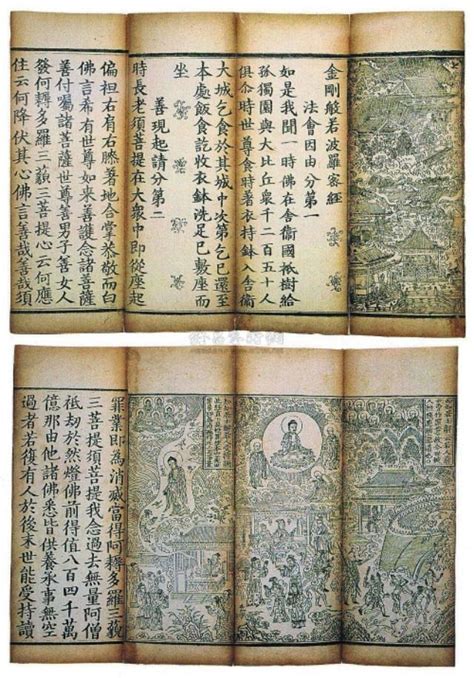 金剛般若波羅密經
法會因由分第一
如是我聞一時佛在舍衛國祇樹給
孤獨園與大比丘衆千二百五十人
俱尒時世尊食時著衣持鉢入舍衛
大城乞食於其城中次第乞已還至
本處飯食訖收衣鉢洗足已敷座而
坐
善現起請分第二
時長老須菩提在大衆中即從座起
偏袒右肩右膝著地合掌恭敬而白
佛言希有世尊如來善護念諸菩薩
善付囑諸菩薩世尊善男子善女人
發阿耨多羅三藐三菩提心云何應
住云何降伏其心佛言善哉善哉須
罪業即為消滅當得阿耨多羅三藐
三菩提須菩提我念過去無量阿僧
祇劫於然燈佛前得值八百四千萬
億那由他諸佛悉皆供養承事無空
過者若復有人於後末世能受持讀